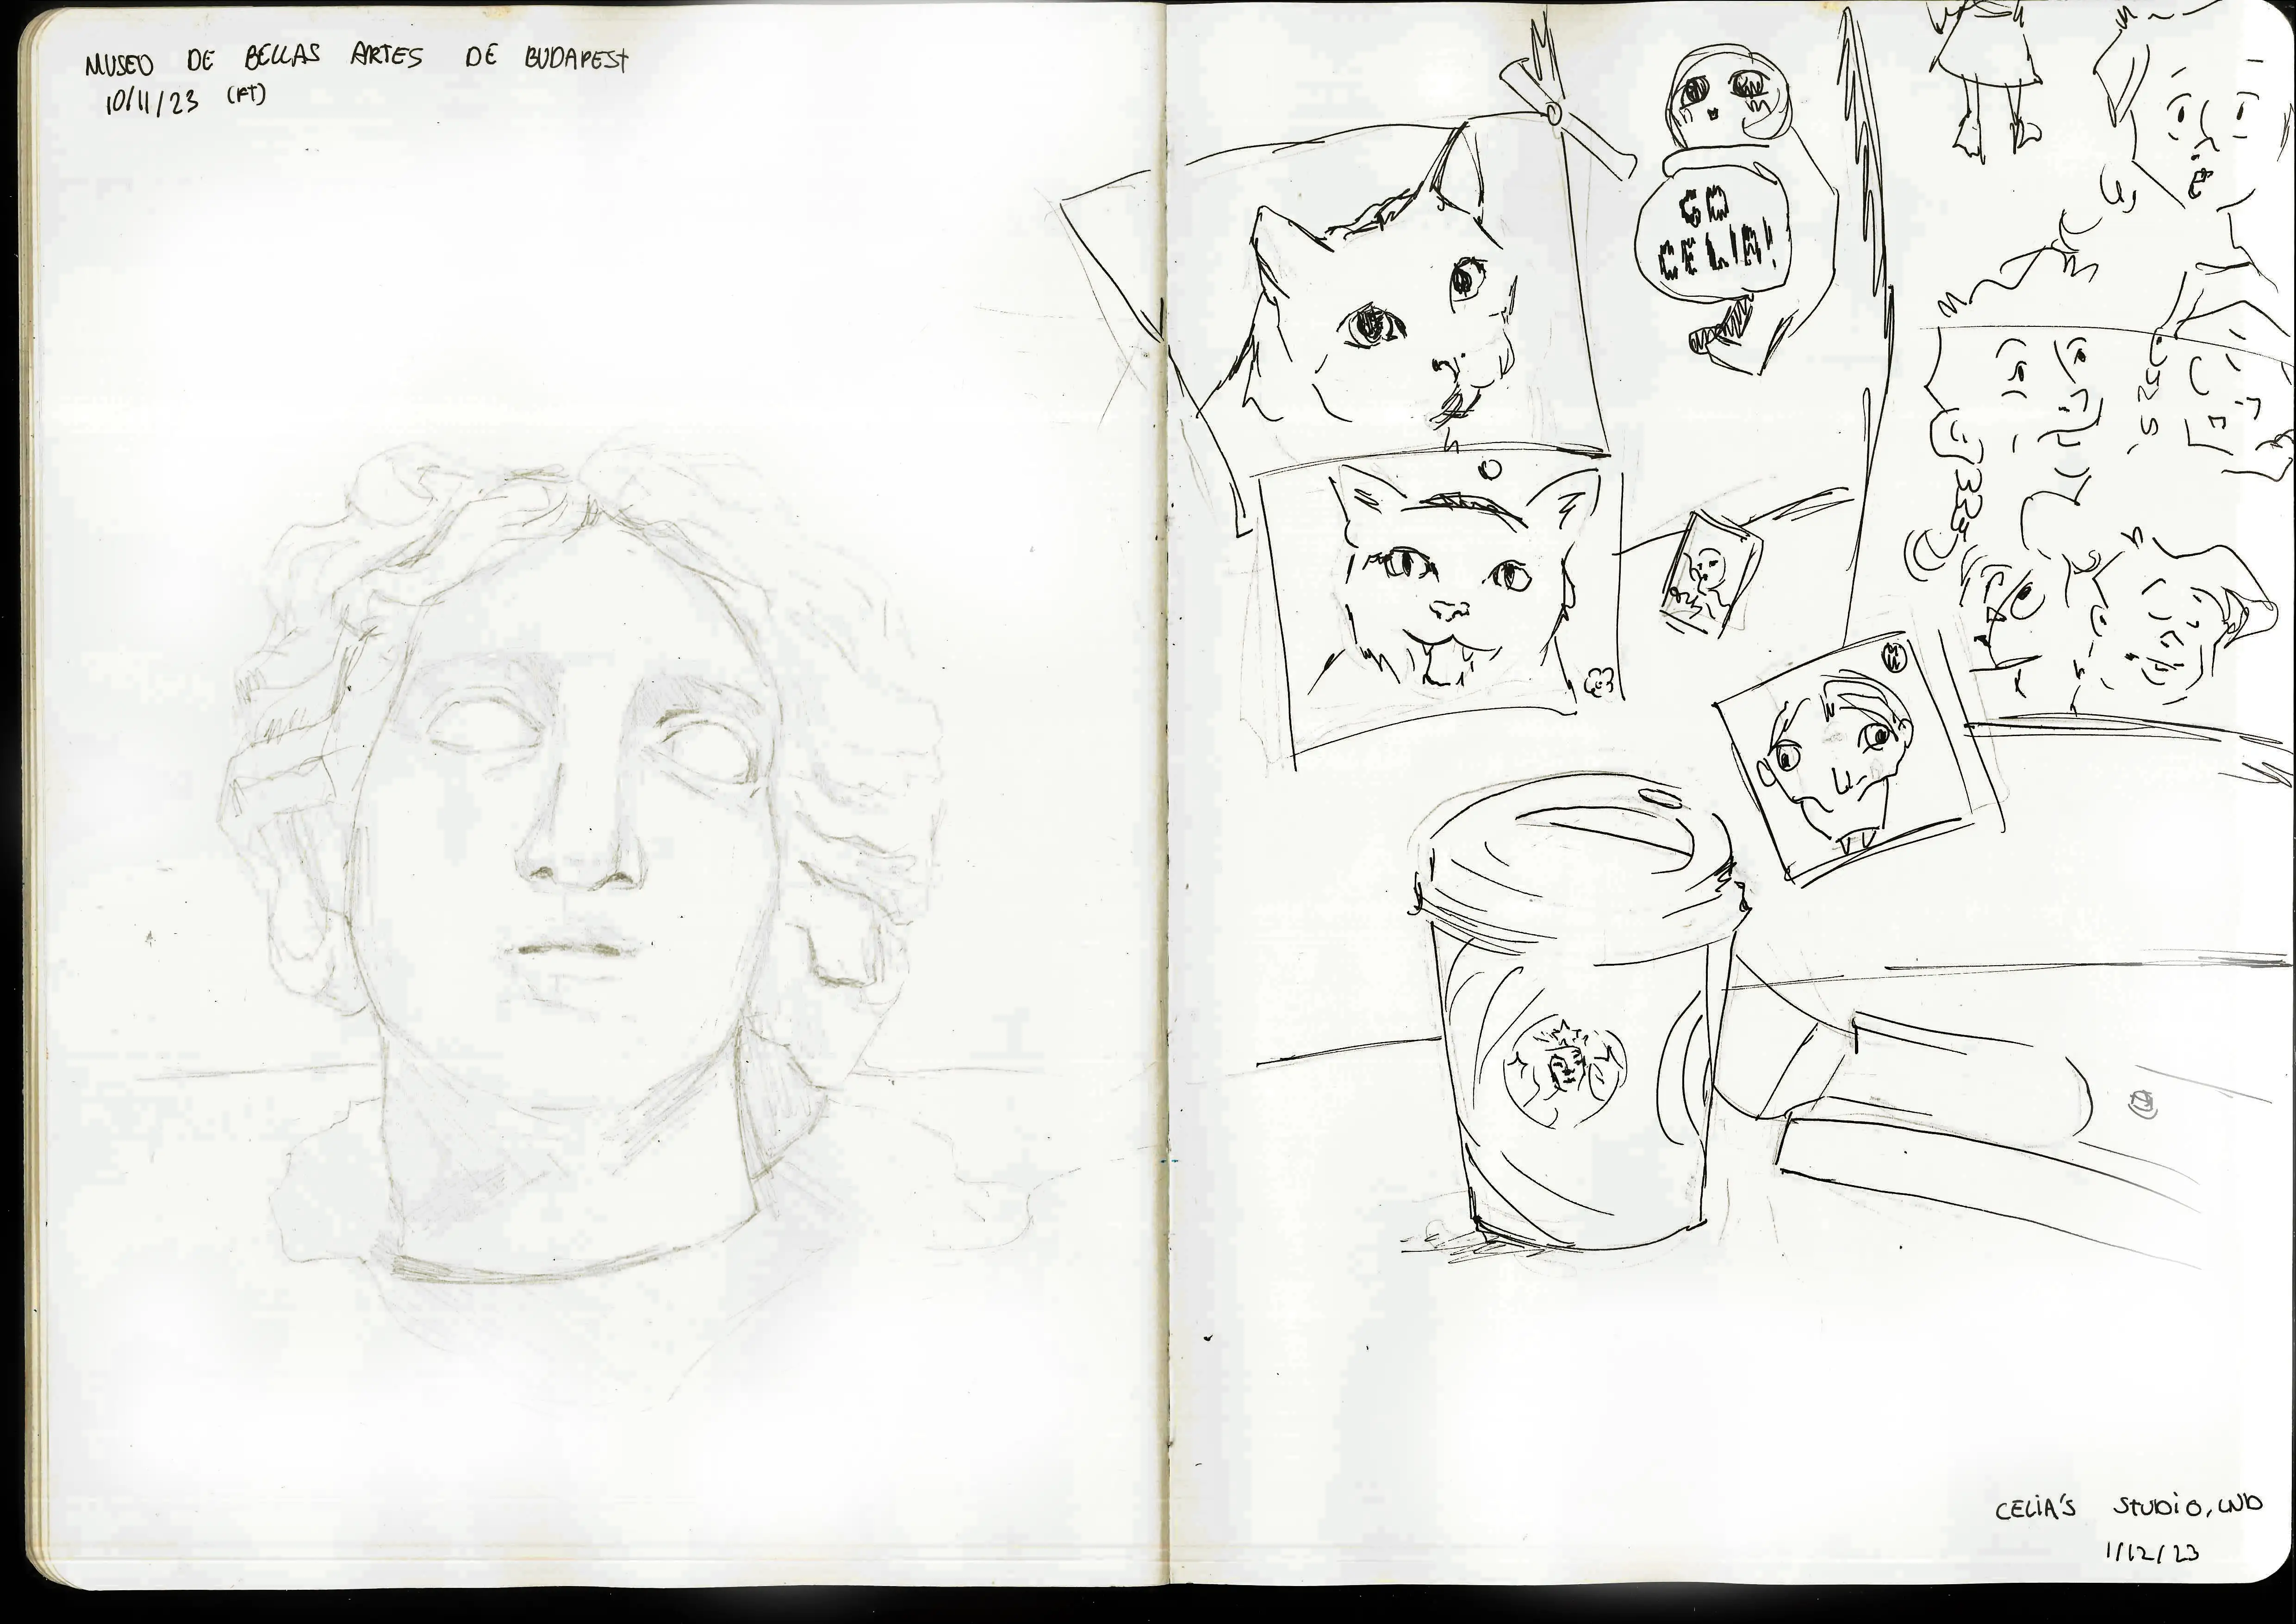 MUSEO DE BELLAS ARTES DE BUDAPEST
10/11/23 (FT)
GO
CELIA!
CELIA'S STUDIO, LND
1/12/23